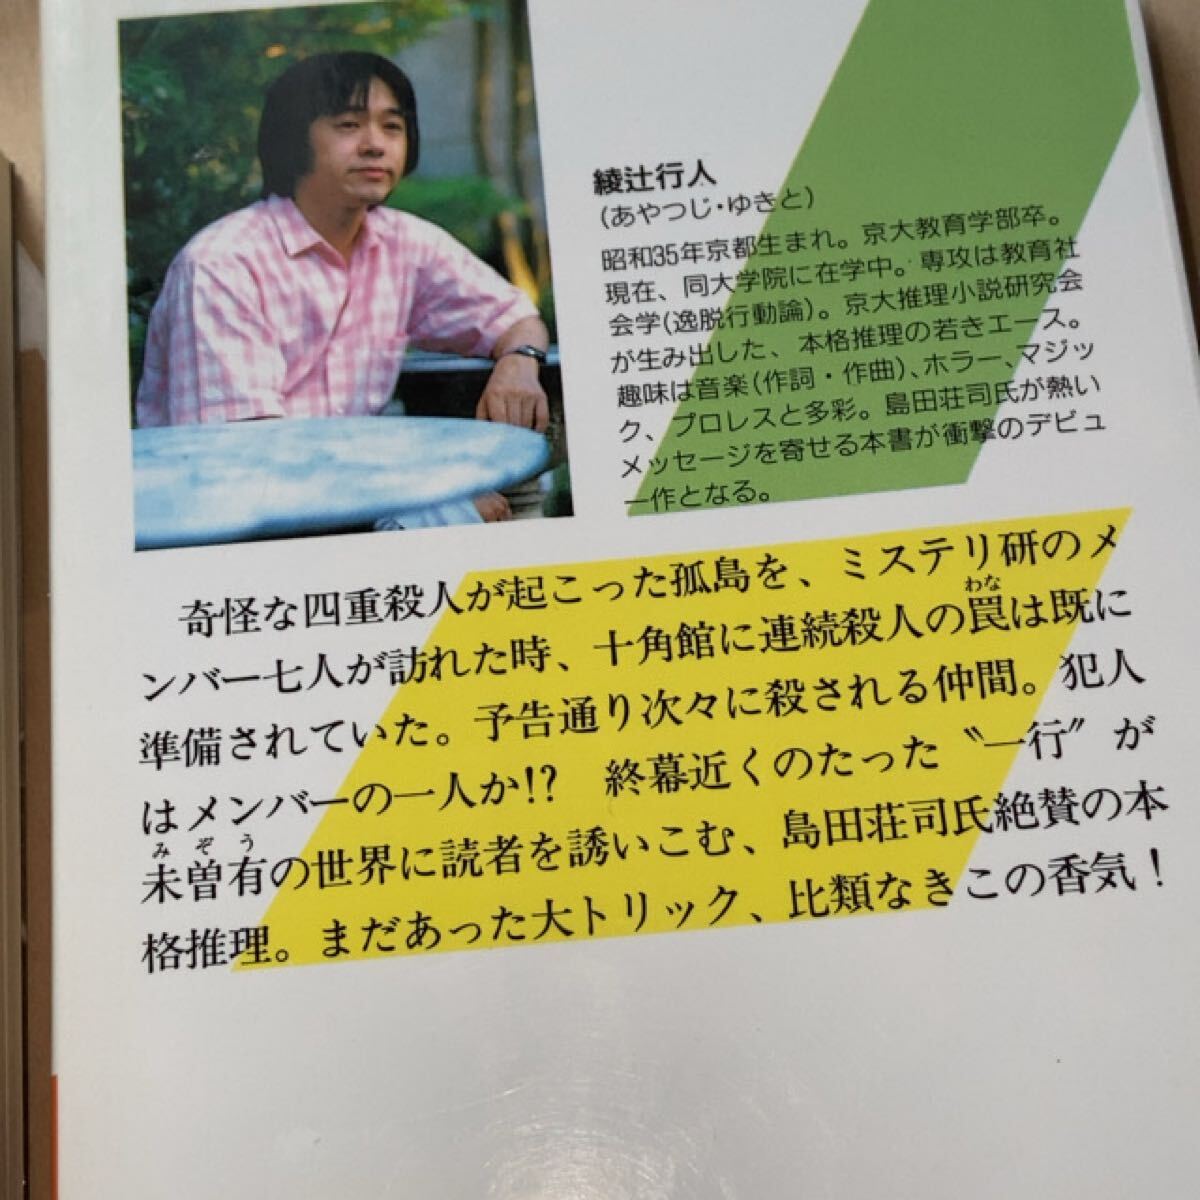 綾辻行人
(あやつじ・ゆきと)
昭和35年京都生まれ。京大教育学部卒。
現在、同大学院に在学中。専攻は教育社
会学(逸脱行動論)。京大推理小説研究会
が生み出した、本格推理の若きエース。
趣味は音楽(作詞・作曲)、ホラー、マジッ
ク、プロレスと多彩。島田荘司氏が熱い
メッセージを寄せる本書が衝撃のデビュ
ー作となる。
奇怪な四重殺人が起こった孤島を、ミステリ研のメ
わな
ンバー七人が訪れた時、十角館に連続殺人の罠は既に
準備されていた。予告通り次々に殺される仲間。犯人
はメンバーの一人か!? 終幕近くのたった〝一行〟が
みぞう
未曽有の世界に読者を誘いこむ、島田荘司氏絶賛の本
格推理。まだあった大トリック、比類なきこの香気!